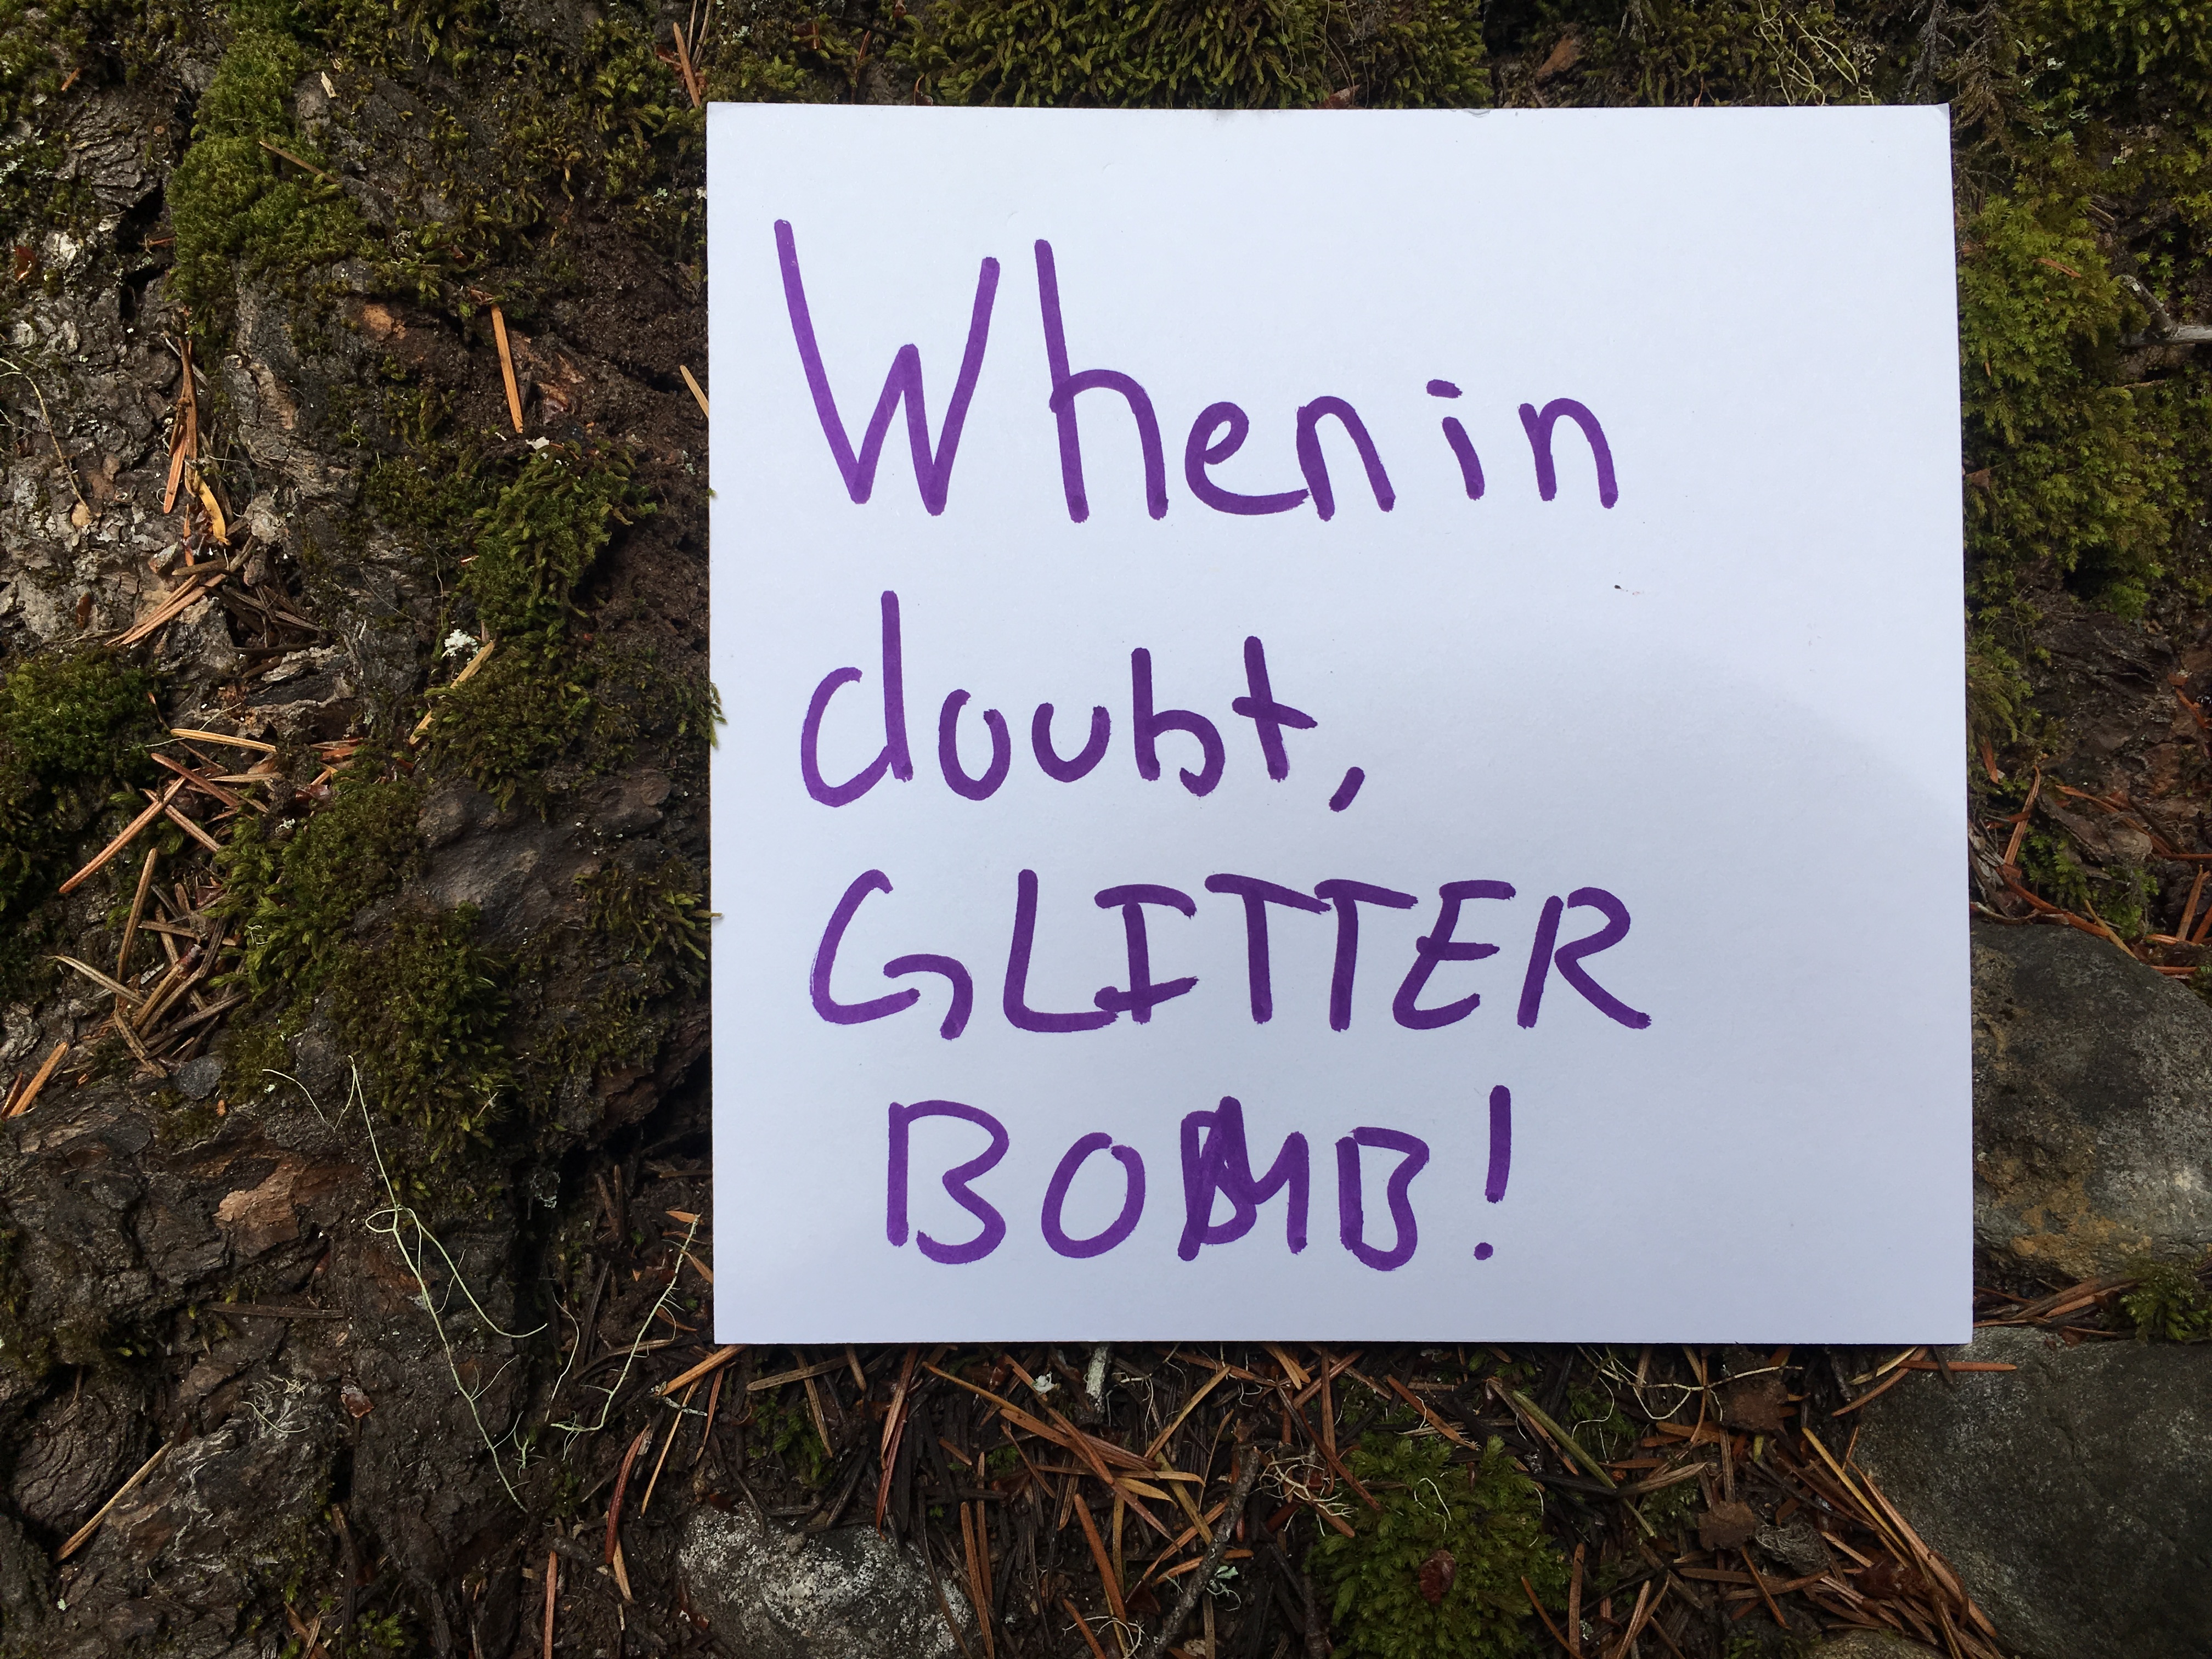 When in
doubt,
GLITTER
BOMB!